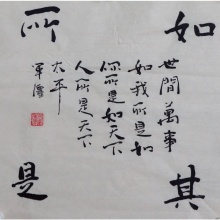 如其
所是
世間萬事
如我所是如
你所是如天下
人所是天下
太平